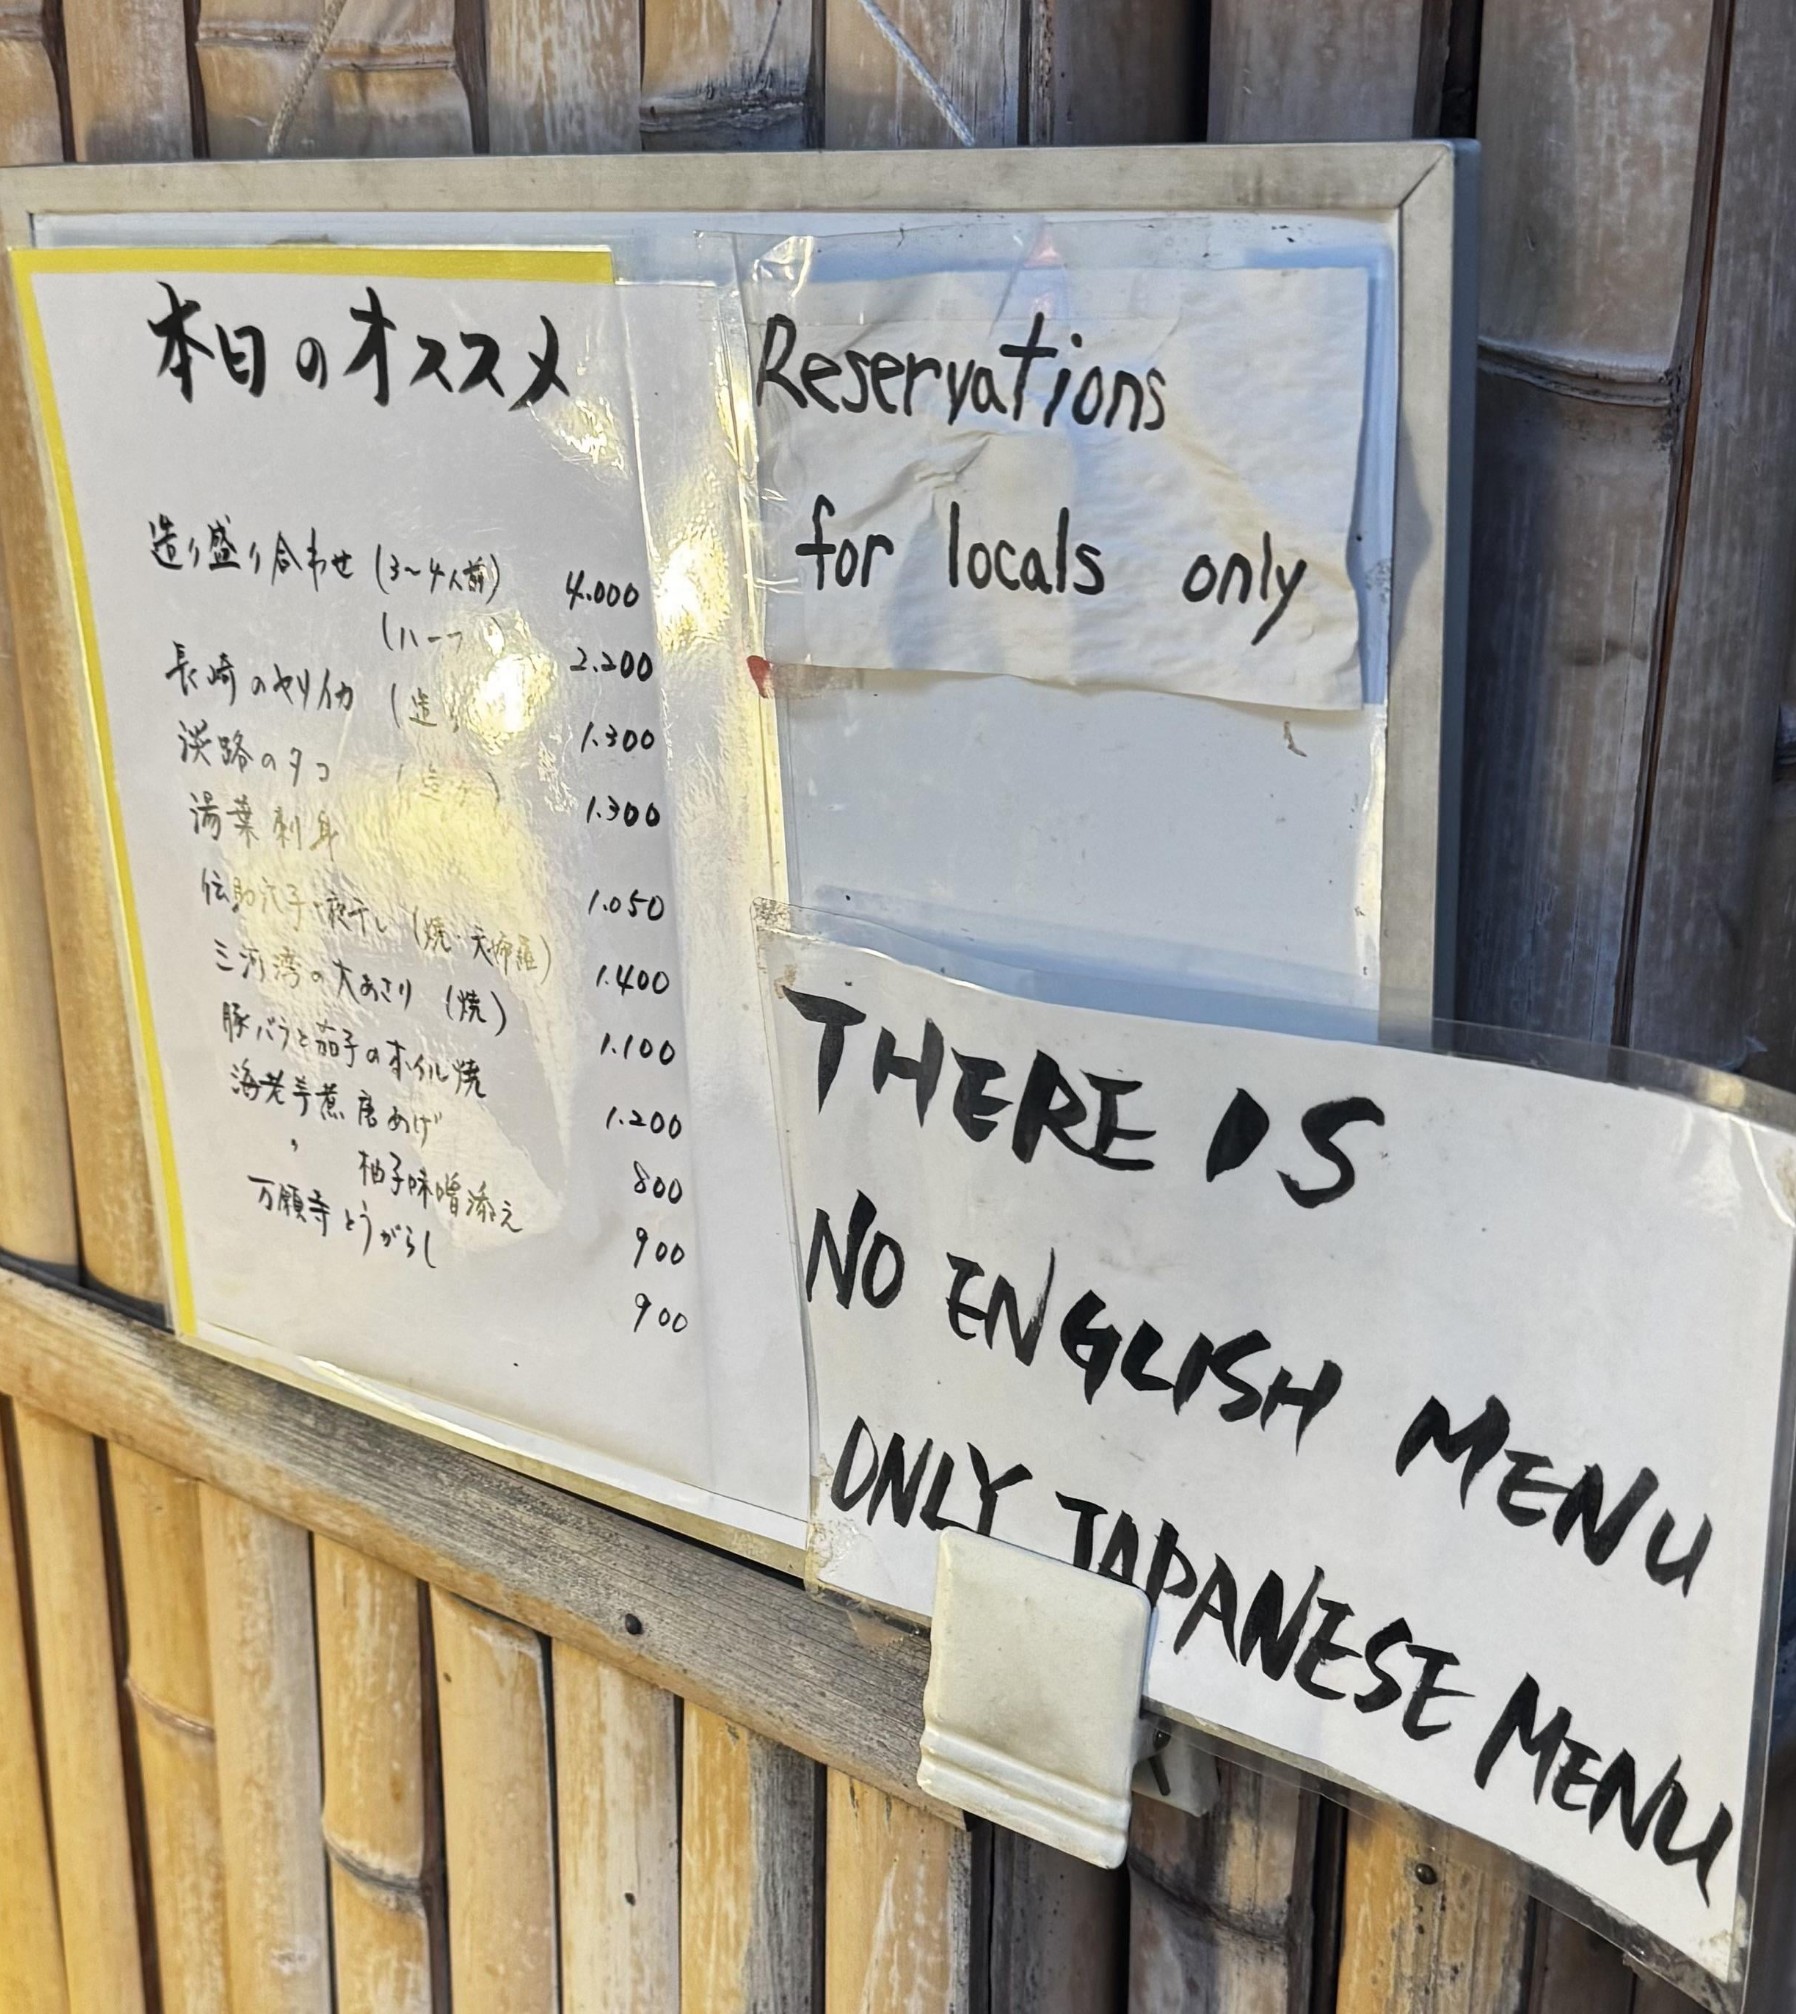 本日のオススメ
造り盛り合わせ (3〜4人前) 4.000
(ハーフ) 2.200
長崎のヤリイカ (造り) 1.300
淡路のタコ 1.300
湯葉刺身 1.050
伝助穴子一夜干し (焼・天婦羅) 1.400
三河湾の大あさり (焼) 1.100
豚バラと茄子のホイル焼 1.200
海老芋煮唐あげ 800
〃 柚子味噌添え 900
万願寺とうがらし 900
Reservations
for locals only
THERE IS
NO ENGLISH MENU
ONLY JAPANESE MENU